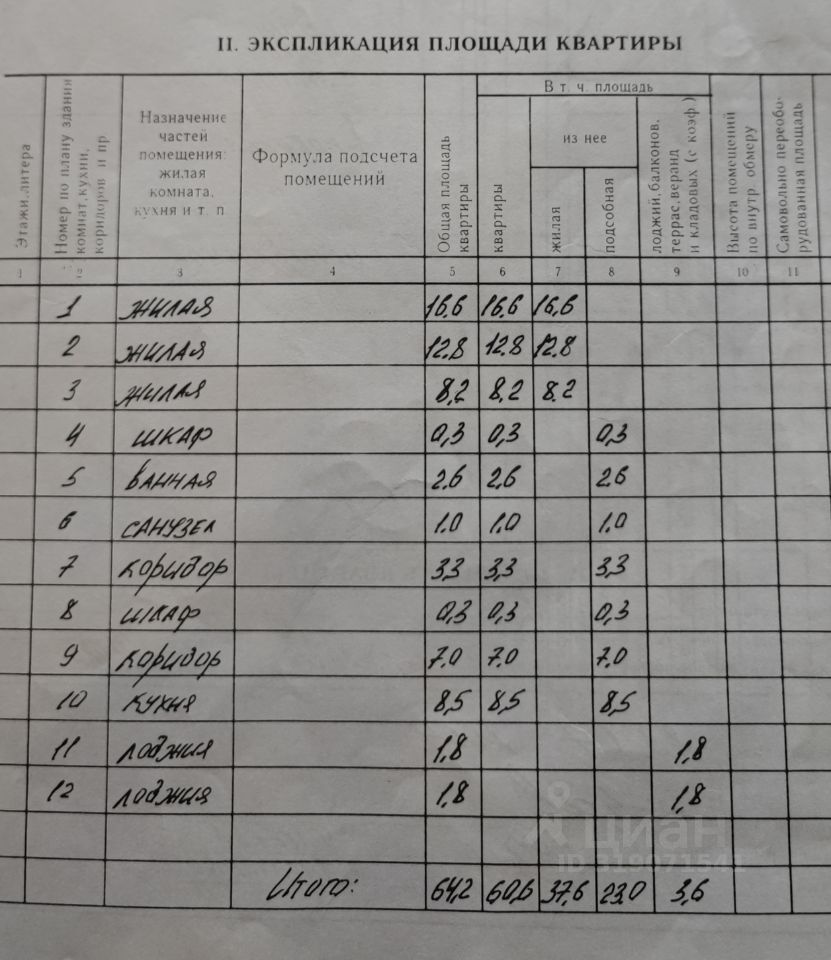 II. ЭКСПЛИКАЦИЯ ПЛОЩАДИ КВАРТИРЫ
Этажи, литера
Номер по плану здания комнат, кухни, коридоров и пр
Назначение
частей
помещения:
жилая
комната,
кухня и т. п
Формула подсчета
помещений
Общая площадь квартиры
В т. ч. площадь
квартиры
из нее
жилая
подсобная
лоджий, балконов, террас, веранд и кладовых (с коэф)
Высота помещений по внутр обмеру
Самовольно переоборудованная площадь
1 2 3 4 5 6 7 8 9 10 11
1 жилая 16,6 16,6 16,6
2 жилая 12.8 12.8 12.8
3 жилая 8,2 8,2 8.2
4 шкаф 0,3 0,3 0,3
5 ванная 2.6 2,6 2.6
6 санузел 1.0 1.0 1.0
7 коридор 3,3 3,3 3,3
8 шкаф 0,3 0,3 0,3
9 коридор 7.0 7.0 7.0
10 кухня 8,5 8,5 8,5
11 лоджия 1,8 1,8
12 лоджия 1,8 1,8
Итого: 64,2 60,6 37,6 23,0 3,6
циан